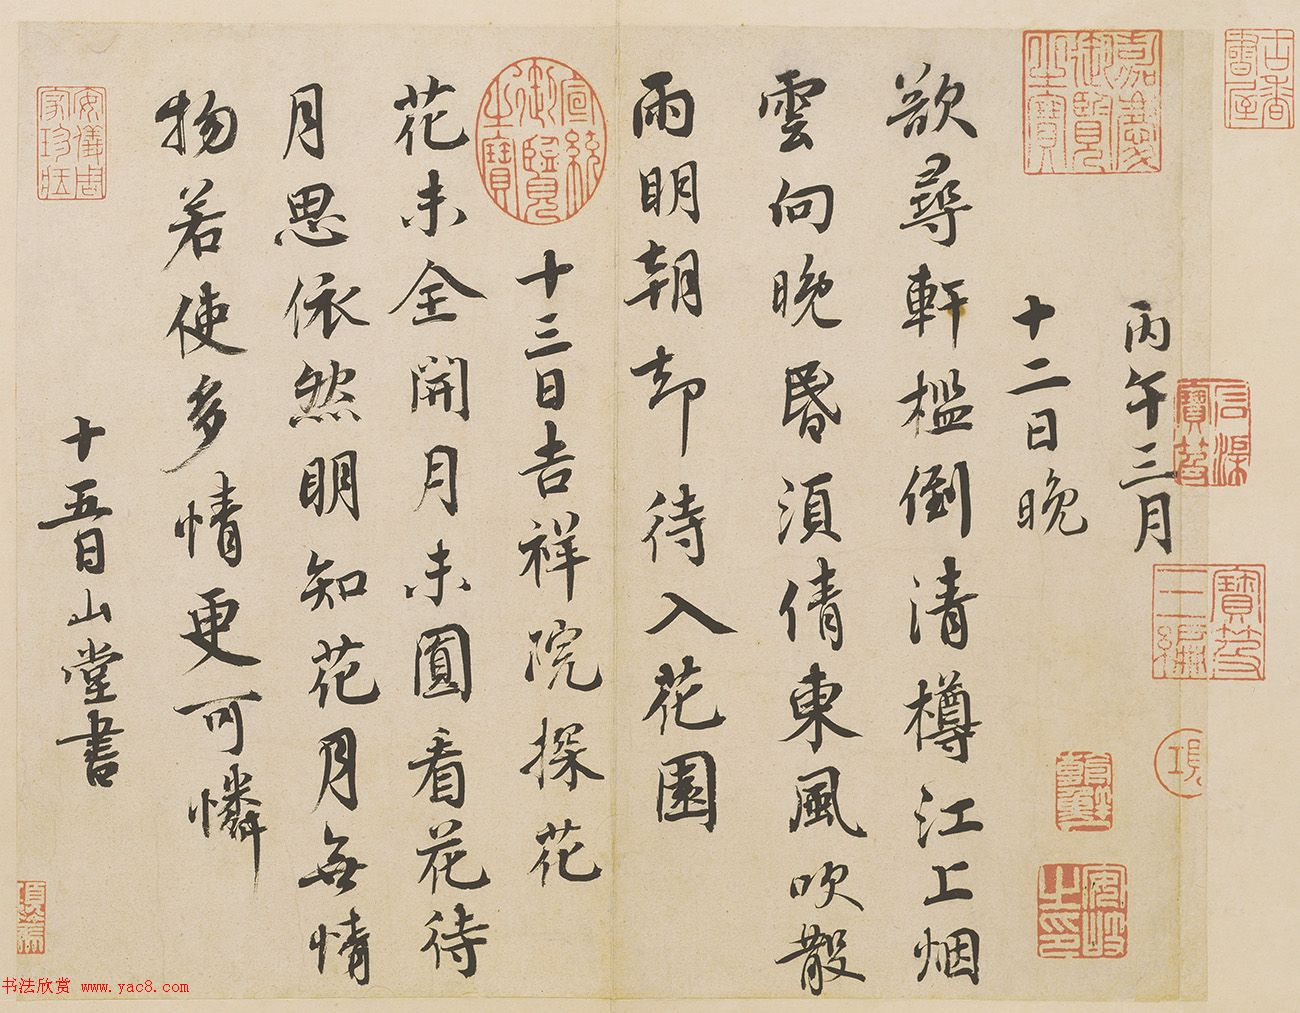 丙午三月
十二日晚
欲尋軒檻倒清樽江上烟
雲向晚昏須倩東風吹散
雨明朝却待入花園
十三日吉祥院探花
花未全開月未圓看花待
月思依然明知花月無情
物若使多情更可憐
十五日山堂書
嘉慶御覽之寶
宣統御覽之寶
安儀周家珍藏
古香書屋
石渠寶笈
寶笈三編
項
書法欣赏 www.yac8.com